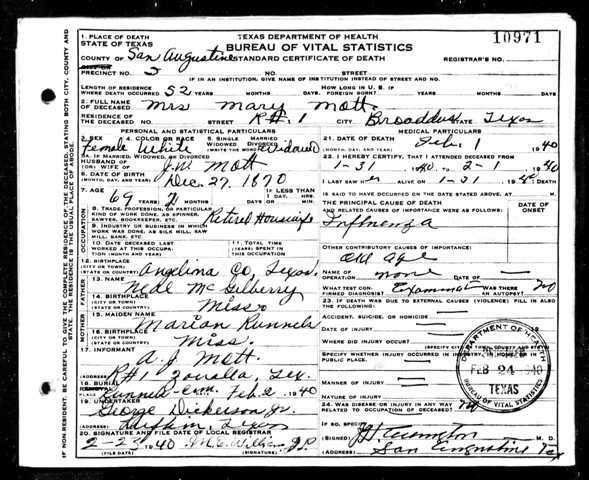 1. PLACE OF DEATH
STATE OF TEXAS
TEXAS DEPARTMENT OF HEALTH
10971
BUREAU OF VITAL STATISTICS
COUNTY OF San Augustine
STANDARD CERTIFICATE OF DEATH
REGISTRAR'S NO.
PRECINCT NO. 5 NO. STREET
IF IN AN INSTITUTION, GIVE NAME OF INSTITUTION INSTEAD OF STREET AND NO.
LENGTH OF RESIDENCE
WHERE DEATH OCCURRED 52 YEARS MONTHS DAYS
HOW LONG IN U. S. IF
FOREIGN BORN? YEARS MONTHS DAYS
2. FULL NAME
OF DECEASED Mrs Mary Mott
RESIDENCE OF
THE DECEASED NO. STREET R#1 CITY Broaddus STATE Texas
PERSONAL AND STATISTICAL PARTICULARS
3. SEX Female
4. COLOR OR RACE White
5. SINGLE MARRIED WIDOWED DIVORCED (WRITE THE WORD) Widowed
5A. IF MARRIED, WIDOWED, OR DIVORCED
HUSBAND OF
(OR) WIFE OF J.W. Mott
6. DATE OF BIRTH
(MONTH, DAY, AND YEAR) Dec. 27, 1870
7. AGE 69 YEARS MONTHS DAYS
IF LESS THAN
1 DAY, HRS. MIN.
8. TRADE, PROFESSION, OR PARTICULAR
KIND OF WORK DONE, AS SPINNER,
SAWYER, BOOKKEEPER, ETC. Retired Housewife
9. INDUSTRY OR BUSINESS IN WHICH
WORK WAS DONE, AS SILK MILL, SAW
MILL, BANK, ETC
10. DATE DECEASED LAST
WORKED AT THIS OCCUPATION
(MONTH AND YEAR)
11. TOTAL TIME
(YEARS) SPENT IN
THIS OCCUPATION
12. BIRTHPLACE
(CITY OR TOWN)
(STATE OR COUNTRY) Angelina Co, Texas
FATHER
13. NAME
14. BIRTHPLACE
(CITY OR TOWN)
(STATE OR COUNTRY) Miss.
MOTHER
15. MAIDEN NAME Marian Runnels
16. BIRTHPLACE
(CITY OR TOWN)
(STATE OR COUNTRY) Miss.
17. INFORMANT A. J. Mott
(ADDRESS) R#1 Zavalla, Tex.
18. BURIAL Feb 2 1940
19. UNDERTAKER
George Dickerson Jr.
Lufkin, Texas
20. SIGNATURE AND FILE DATE OF LOCAL REGISTRAR
1940
(FILE DATE) (SIGNATURE)
MEDICAL PARTICULARS
21. DATE OF DEATH
(MONTH, DAY, AND YEAR) Feb. 1 1940
22. I HEREBY CERTIFY, THAT I ATTENDED DECEASED FROM
1-31 1940 TO 2-1 1940
I LAST SAW her ALIVE ON 1-31 1940
IS SAID TO HAVE OCCURRED ON THE DATE STATED ABOVE, AT M.
THE PRINCIPAL CAUSE OF DEATH
AND RELATED CAUSES OF IMPORTANCE WERE AS FOLLOWS:
DATE OF
ONSET
Influenza
OTHER CONTRIBUTORY CAUSES OF IMPORTANCE:
old age
NAME OF
OPERATION none DATE OF
WHAT TEST
CONFIRMED DIAGNOSIS?
WAS THERE
AN AUTOPSY? no
23. IF DEATH WAS DUE TO EXTERNAL CAUSES (VIOLENCE) FILL IN ALSO
THE FOLLOWING:
ACCIDENT, SUICIDE, OR HOMICIDE
DATE OF INJURY 19
WHERE DID INJURY OCCUR?
MANNER OF INJURY
NATURE OF INJURY
24. WAS DISEASE OR INJURY IN ANY WAY
RELATED TO OCCUPATION OF DECEASED?
IF SO, SPECIFY
(SIGNED) M. D.
(ADDRESS) San Augustine Tex
DEPARTMENT OF HEALTH
FEB 24 1940
TEXAS
BUREAU OF VITAL STATISTICS